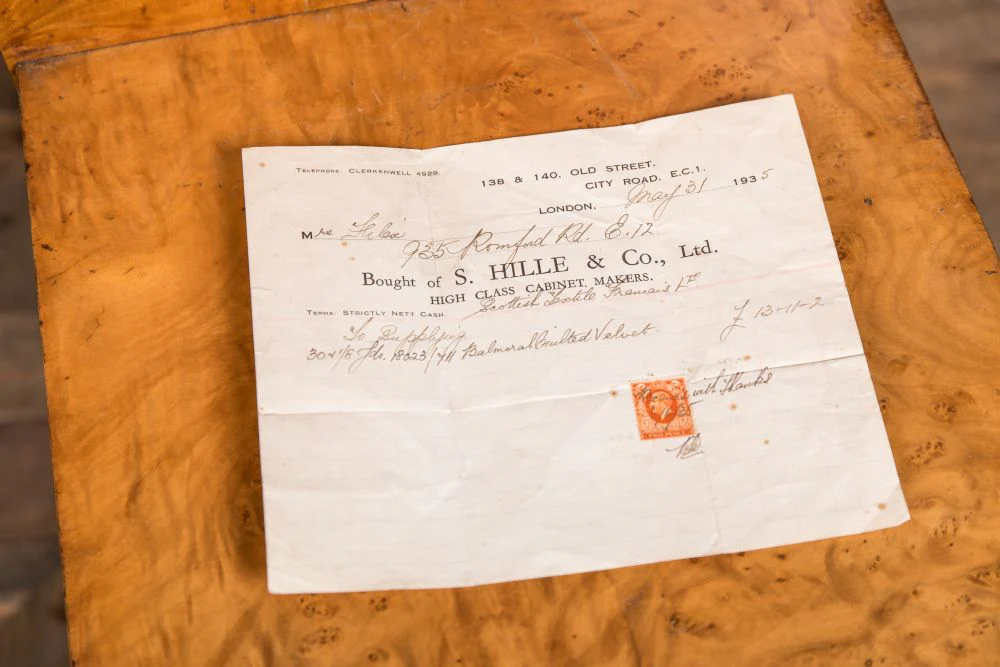 TELEPHONE: CLERKENWELL 4929.
138 & 140, OLD STREET,
CITY ROAD, E.C.1.
LONDON, May 31 1935
Mrs
935 Romford Rd. E.12
Bought of S. HILLE & Co., Ltd.
HIGH CLASS CABINET MAKERS.
Scottish Textile Francais
TERMS: STRICTLY NETT CASH.
To Supplying
£ 13-11-2
Yds. 18023/411 Balmoral Quilted Velvet.
with thanks
TWO PENCE